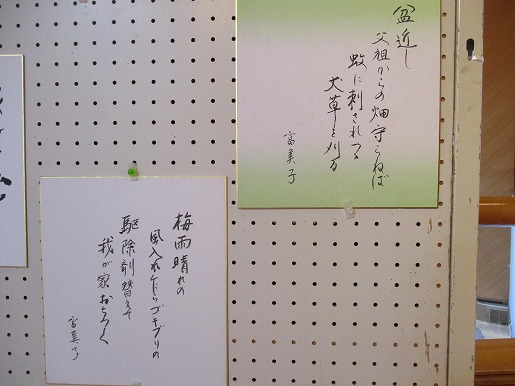 盆近し
父祖からの畑守らねば
蚊に刺されつつ
草を刈る
富美子
梅雨晴れの
風入れ ゴキブリの
駆除剤替えて
我が家おちつく
富美子